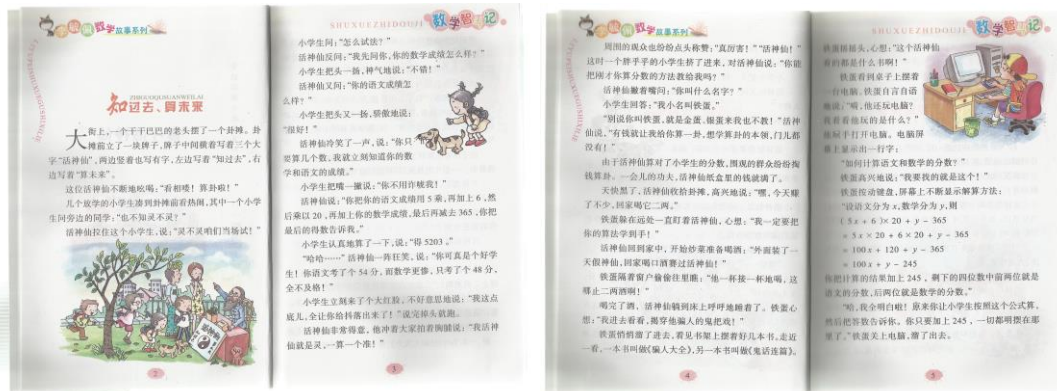 李毓佩数学故事系列
知过去、算未来
ZHIGUOQUSUANWEILAI
大街上,一个干干巴巴的老头摆了一个卦摊。卦
摊前立了一块牌子,牌子中间横着写着三个大
字“活神仙”,两边竖着也写有字,左边写着“知过去”,右
边写着“算未来”。
这位活神仙不断地吆喝:“看相喽!算卦啦!”
几个放学的小学生凑到卦摊前看热闹,其中一个小学
生问旁边的同学:“也不知灵不灵?”
活神仙拉住这个小学生,说:“灵不灵咱们当场试!”
2
SHUXUEZHIDOUJI
数学智斗记
小学生问:“怎么试法?”
活神仙反问:“我先问你,你的数学成绩怎么样?”
小学生把头一扬,神气地说:“不错!”
活神仙又问:“你的语文成绩怎
么样?”
小学生把头又一扬,骄傲地说:
“很好!”
活神仙冷笑了一声,说:“你只
要算几个数,我就立刻知道你的数
学和语文的成绩。”
小学生把嘴一撇说:“你不用诈唬我!”
活神仙说:“你把你的语文成绩用 5 乘,再加上 6,然
后乘以 20,再加上你的数学成绩,最后再减去 365,你把
最后的得数告诉我。”
小学生认真地算了一下,说:“得 5203。”
“哈哈……”活神仙一阵狂笑,说:“你可真是个好学
生!你语文考了个 54 分,而数学更惨,只考了个 48 分,
全不及格!”
小学生立刻来了个大红脸,不好意思地说:“我这点
底儿,全让你给抖落出来了!”说完掉头就跑。
活神仙非常得意,他冲着大家拍着胸脯说:“我活神
仙就是灵,一算一个准!”
3
李毓佩数学故事系列
周围的观众也纷纷点头称赞:“真厉害!”“活神仙!”
这时一个胖乎乎的小学生挤了进来,对活神仙说:“你能
把刚才你算分数的方法教给我吗?”
活神仙撇着嘴问:“你叫什么名字?”
小学生回答:“我小名叫铁蛋。”
“别说你叫铁蛋,就是金蛋、银蛋来我也不教!”活神
仙说,“有钱就让我给你算一卦,想学算卦的本领,门儿都
没有!”
由于活神仙算对了小学生的分数,围观的群众纷纷掏
钱算卦。一会儿的功夫,活神仙纸盒里的钱就满了。
天快黑了,活神仙收拾卦摊,高兴地说:“嘿,今天赚
了不少,回家喝它二两。”
铁蛋躲在远处一直盯着活神仙,心想:“我一定要把
你的算法学到手!”
活神仙回到家中,开始炒菜准备喝酒:“外面装了一
天假神仙,回家喝口酒赛过活神仙!”
铁蛋隔着窗户偷偷往里瞧:“他一杯接一杯地喝,这
哪止二两酒啊!”
喝完了酒,活神仙躺到床上呼呼地睡着了。铁蛋心
想:“我进去看看,揭穿他骗人的鬼把戏!”
铁蛋悄悄溜了进去,看见书架上摆着好几本书,走近
一看,一本书叫做《骗人大全》,另一本书叫做《鬼话连篇》。
4
SHUXUEZHIDOUJI
数学智斗记
铁蛋摇摇头,心想:“这个活神仙
看的都是什么书啊!”
铁蛋看到桌子上摆着
一台电脑,铁蛋自言自语
地说:“嗬,他还玩电脑?
我看看他玩的是什么?”
随手打开电脑,电脑屏
幕上显示出一行字:
“如何计算语文和数学的分数?”
铁蛋高兴地说:“我要找的就是这个!”
铁蛋按动键盘,屏幕上不断显示解算方法:
“设语文分为 x,数学分为 y,则
(5x + 6)× 20 + y - 365
= 5x × 20 + 6 × 20 + y - 365
= 100x + 120 + y - 365
= 100x + y - 245
你把计算的结果加上 245,剩下的四位数中前两位就是
语文的分数,后两位就是数学的分数。”
“哈,我全明白啦!原来你让小学生按照这个公式算,
然后把答数告诉你,你只要加上 245,一切都明摆在那
里了。”铁蛋关上电脑,溜了出去。
5